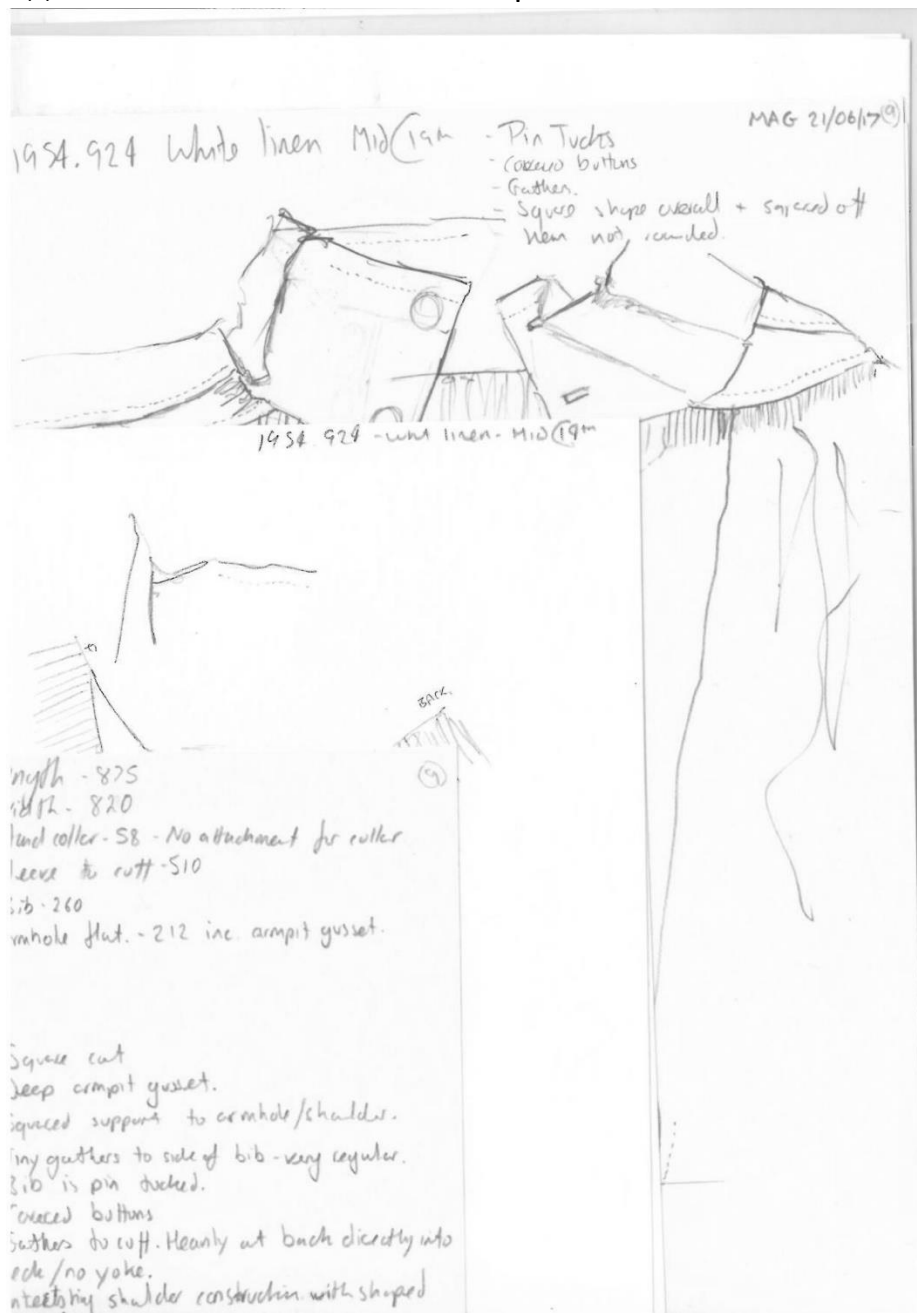 1954.924 White linen Mid C19th
- Pin Tucks
- Covered buttons
- Gathers.
- Square shape overall + squared off
hem not rounded.
MAG 21/06/17 9
1954.924 - linen - MID C19th
BACK.
9
ngth - 875
idth - 820
tand collar - 58 - No attachment for collar
leeve to cuff - 510
ib - 260
rmhole flat. - 212 inc. armpit gusset.
Square cut
Deep armpit gusset.
Squared support to armhole/shoulder.
iny gathers to side of bib - very regular.
Bib is pin tucked.
Covered buttons
Gathers to cuff. Heavily at back directly into
eck/no yoke.
nteresting shoulder construction with shaped